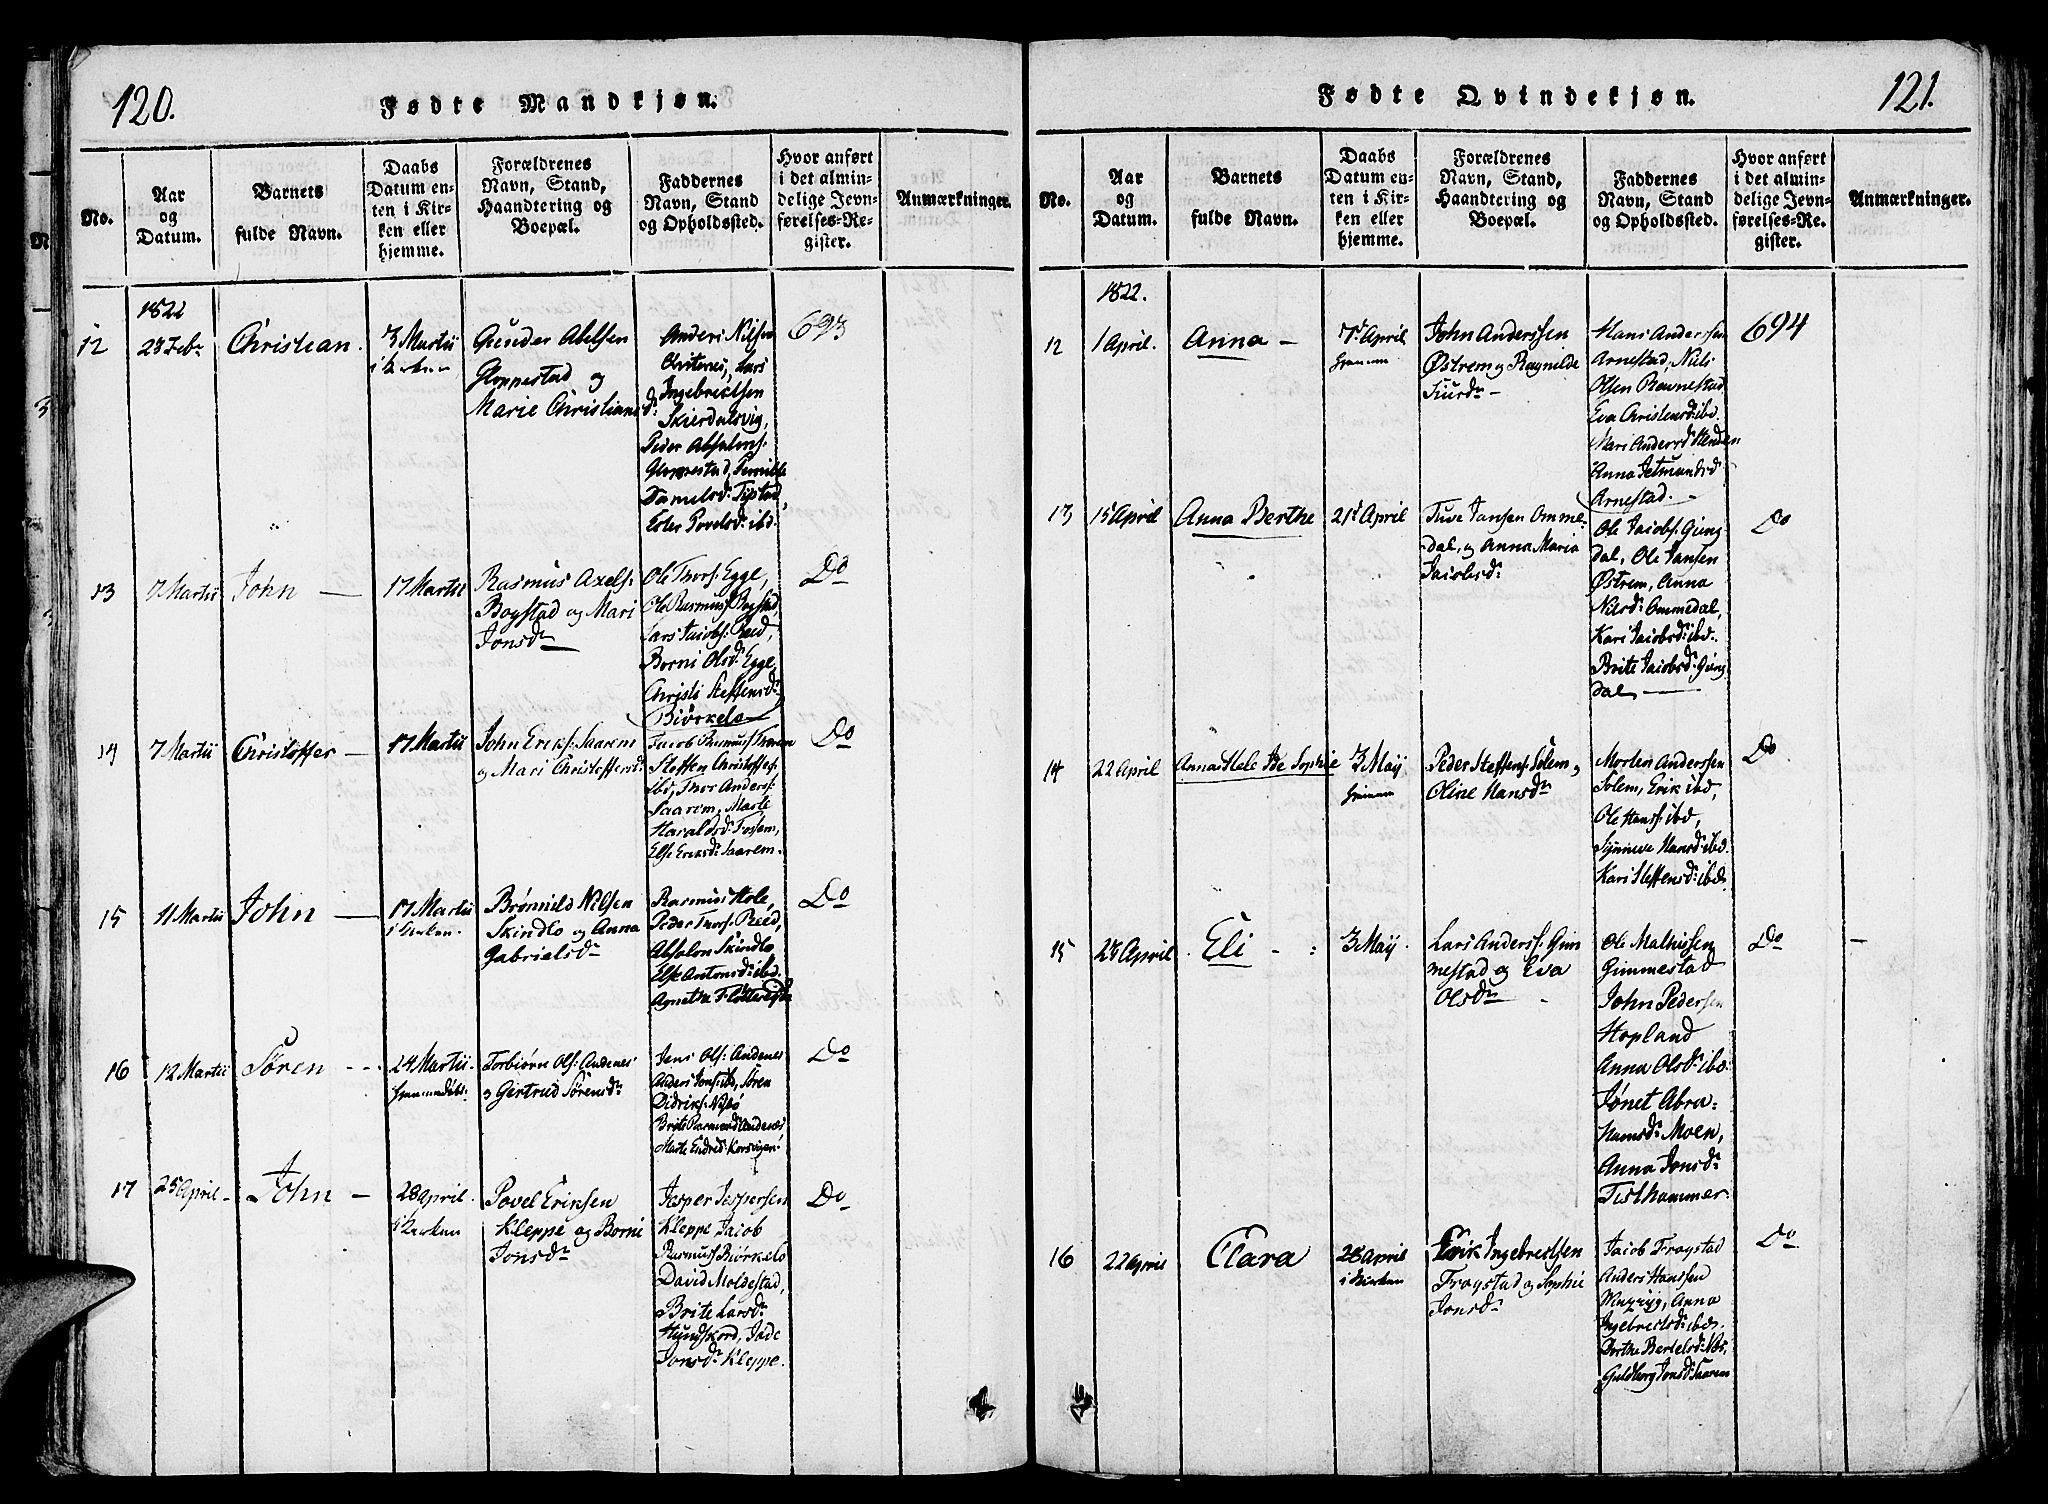 120.
Fødte Mandkjøn.
No.
Aar
og
Datum.
Barnets
fulde Navn.
Daabs
Datum en-
ten i Kir-
ken eller
hjemme.
Forældrenes
Navn, Stand,
Haandtering og
Boepæl.
Faddernes
Navn, Stand
og Opholdssted.
Hvor anført
i det almin-
delige Jevn-
førelses-Re-
gister.
Anmærkninger.
1822
12
28 Febr
Christian.
3 Martii
i Kirken
Gunder Abelsen
Gloppestad og
Marie Christiansd:
Anders Nilsen
Lars
Ingebrictsen
Skierdalsvig,
Peder Absalons:
Gloppestad, Pernille
Danielsd: Tystad,
Ester Povelsd: ibd.
693
13
7 Martii
John —
17 Martii
Rasmus Axels:
Bogstad og Mari
Jonsdr
Ole Thors: Egge,
Ole Rasmus: Bogstad,
Lars Jacobs: Reed,
Borni Olsd: Egge,
Christi Steffensd:
Biørkelo
Do
14
7 Martii
Christoffer —
17 Martii
John Eriks: Saarem
og Mari Christoffersd:
Jacob Rasmus:
Steffen Christoffers:
ibd, Thor Anders:
Saarem, Marte
Haraldsd: Fossem,
Else Eriksd: Saarem.
Do
15
11 Martii
John —
17 Martii
i Kirken.
Brønnild Nilsen
Skindlo og Anna
Gabrielsdr
Rasmus Hole,
Peder Thors: Reed,
Absolon Skindlo
Else Antonsd: ibd.
Agnethe
Do
16
12 Martii
Søren - -
24 Martii
hjemmedøbt.
Torbiørn Ols: Andenes
og Gertrud Sørensdr
Jens Ols: Andenes
Anders Jons: ibd, Søren
Didriks: Nybø
Brite Rasmusd: Andenes
Marte Endresd:
Do
17
25 April -
John —
28 April
i Kirken
Povel Eriksen
Kleppe og Borni
Jonsdr
Jasper Jespersen
Kleppe Jacob
Rasmus: Biørkelo
David Moldestad,
Brite Larsdr
Hundskord, Jode
Jonsdr Kleppe.
Do
121.
Fødte Qvindekjøn.
No.
Aar
og
Datum.
Barnets
fulde Navn.
Daabs
Datum en-
ten i Kir-
ken eller
hjemme.
Forældrenes
Navn, Stand,
Haandtering og
Boepæl.
Faddernes
Navn, Stand
og Opholdssted.
Hvor anført
i det almin-
delige Jevn-
førelses-Re-
gister.
Anmærkninger.
1822.
12
1 April.
Anna -
7d April
hjemme
John Anderssen
Østrem og Ragnilde
Siurdr —
Hans Anderssen
Arnestad, Nils
Olsen Ravnestad
Eva Christensd: ibd.
Mari Andersd: Henden
Anna Jetmundsd:
Arnestad. —
694
13
15 April
Anna Berthe
21d April
Tuve Jansen Omme-
dal, og Anna Maria
Jacobsdr
Ole Jacobs: Gieng-
dal, Ole Jansen
Østrem, Anna
Nilsd: Ommedal,
Kari Jacobsd: ibd.
Brite Jacobsd: Gieng-
dal —
Do
14
22 April
Anna Helene Sophie
3 Maij
hjemme
Peder Steffens: Solem og
Oline Hansdr
Morten Anderssen
Solem, Erik ibd,
Ole Hans: ibd,
Synneve Hansd: ibd.
Kari Steffensd: ibd.
Do
15
28 April
Eli - :
3 Maij.
Lars Anders: Gim
mestad og Eva
Olsdr
Ole Mathissen
Gimmestad
John Pedersen
Hopland
Anna Olsdr ibd.
Jønet Abra-
hamsd: Moen,
Anna Jonsdr
Tisthammer
Do
—
16
22 April
Clara
28 April
i Kirken
Erik Ingebrictsen
Frøystad og Sophie
Jonsdr
Jacob Frøystad
Anders Hanssen
Myzryg, Anna
Ingebrictsd: ibd.
Dorthe Bertelsd: Næs,
Guldborg Jonsd: Saarem
Do